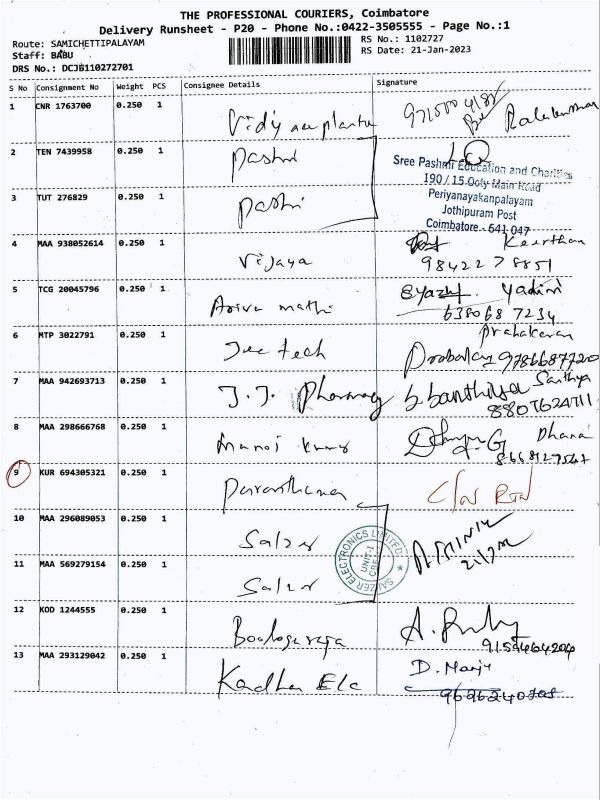 THE PROFESSIONAL COURIERS, Coimbatore
Delivery Runsheet - P20 - Phone No.:0422-3505555 - Page No.:1
Route: SAMICHETTIPALAYAM
Staff: BABU
DRS No.: DCJB110272701
RS No.: 1102727
RS Date: 21-Jan-2023
S No Consignment No Weight PCS Consignee Details Signature
1 CNR 1763700 0.250 1
2 TEN 7439958 0.250 1 Pashmi
Sree Pashmi Education and Charities
190 / 15 Ooty Main Road
Periyanayakanpalayam
Jothipuram Post
Coimbatore - 641 047
3 TUT 276829 0.250 1
4 MAA 938052614 0.250 1 Vijaya Keerthan
5 TCG 20045796 0.250 1 Arivu mathi
638068 7234
6 MTP 3022791 0.250 1 Jee tech Prabakaran
9786687720
7 MAA 942693713 0.250 1 J.J. Pharmacy Santhya
8807624711
8 MAA 298666768 0.250 1 Manoj Kumar Dhana
9 KUR 694305321 0.250 1
10 MAA 296089053 0.250 1 Salzer
SALZER ELECTRONICS LIMITED
UNIT-1
CBE
11 MAA 569279154 0.250 1 Salzer
12 KOD 1244555 0.250 1
13 MAA 293129042 0.250 1 Kadhar Ele D. Manju